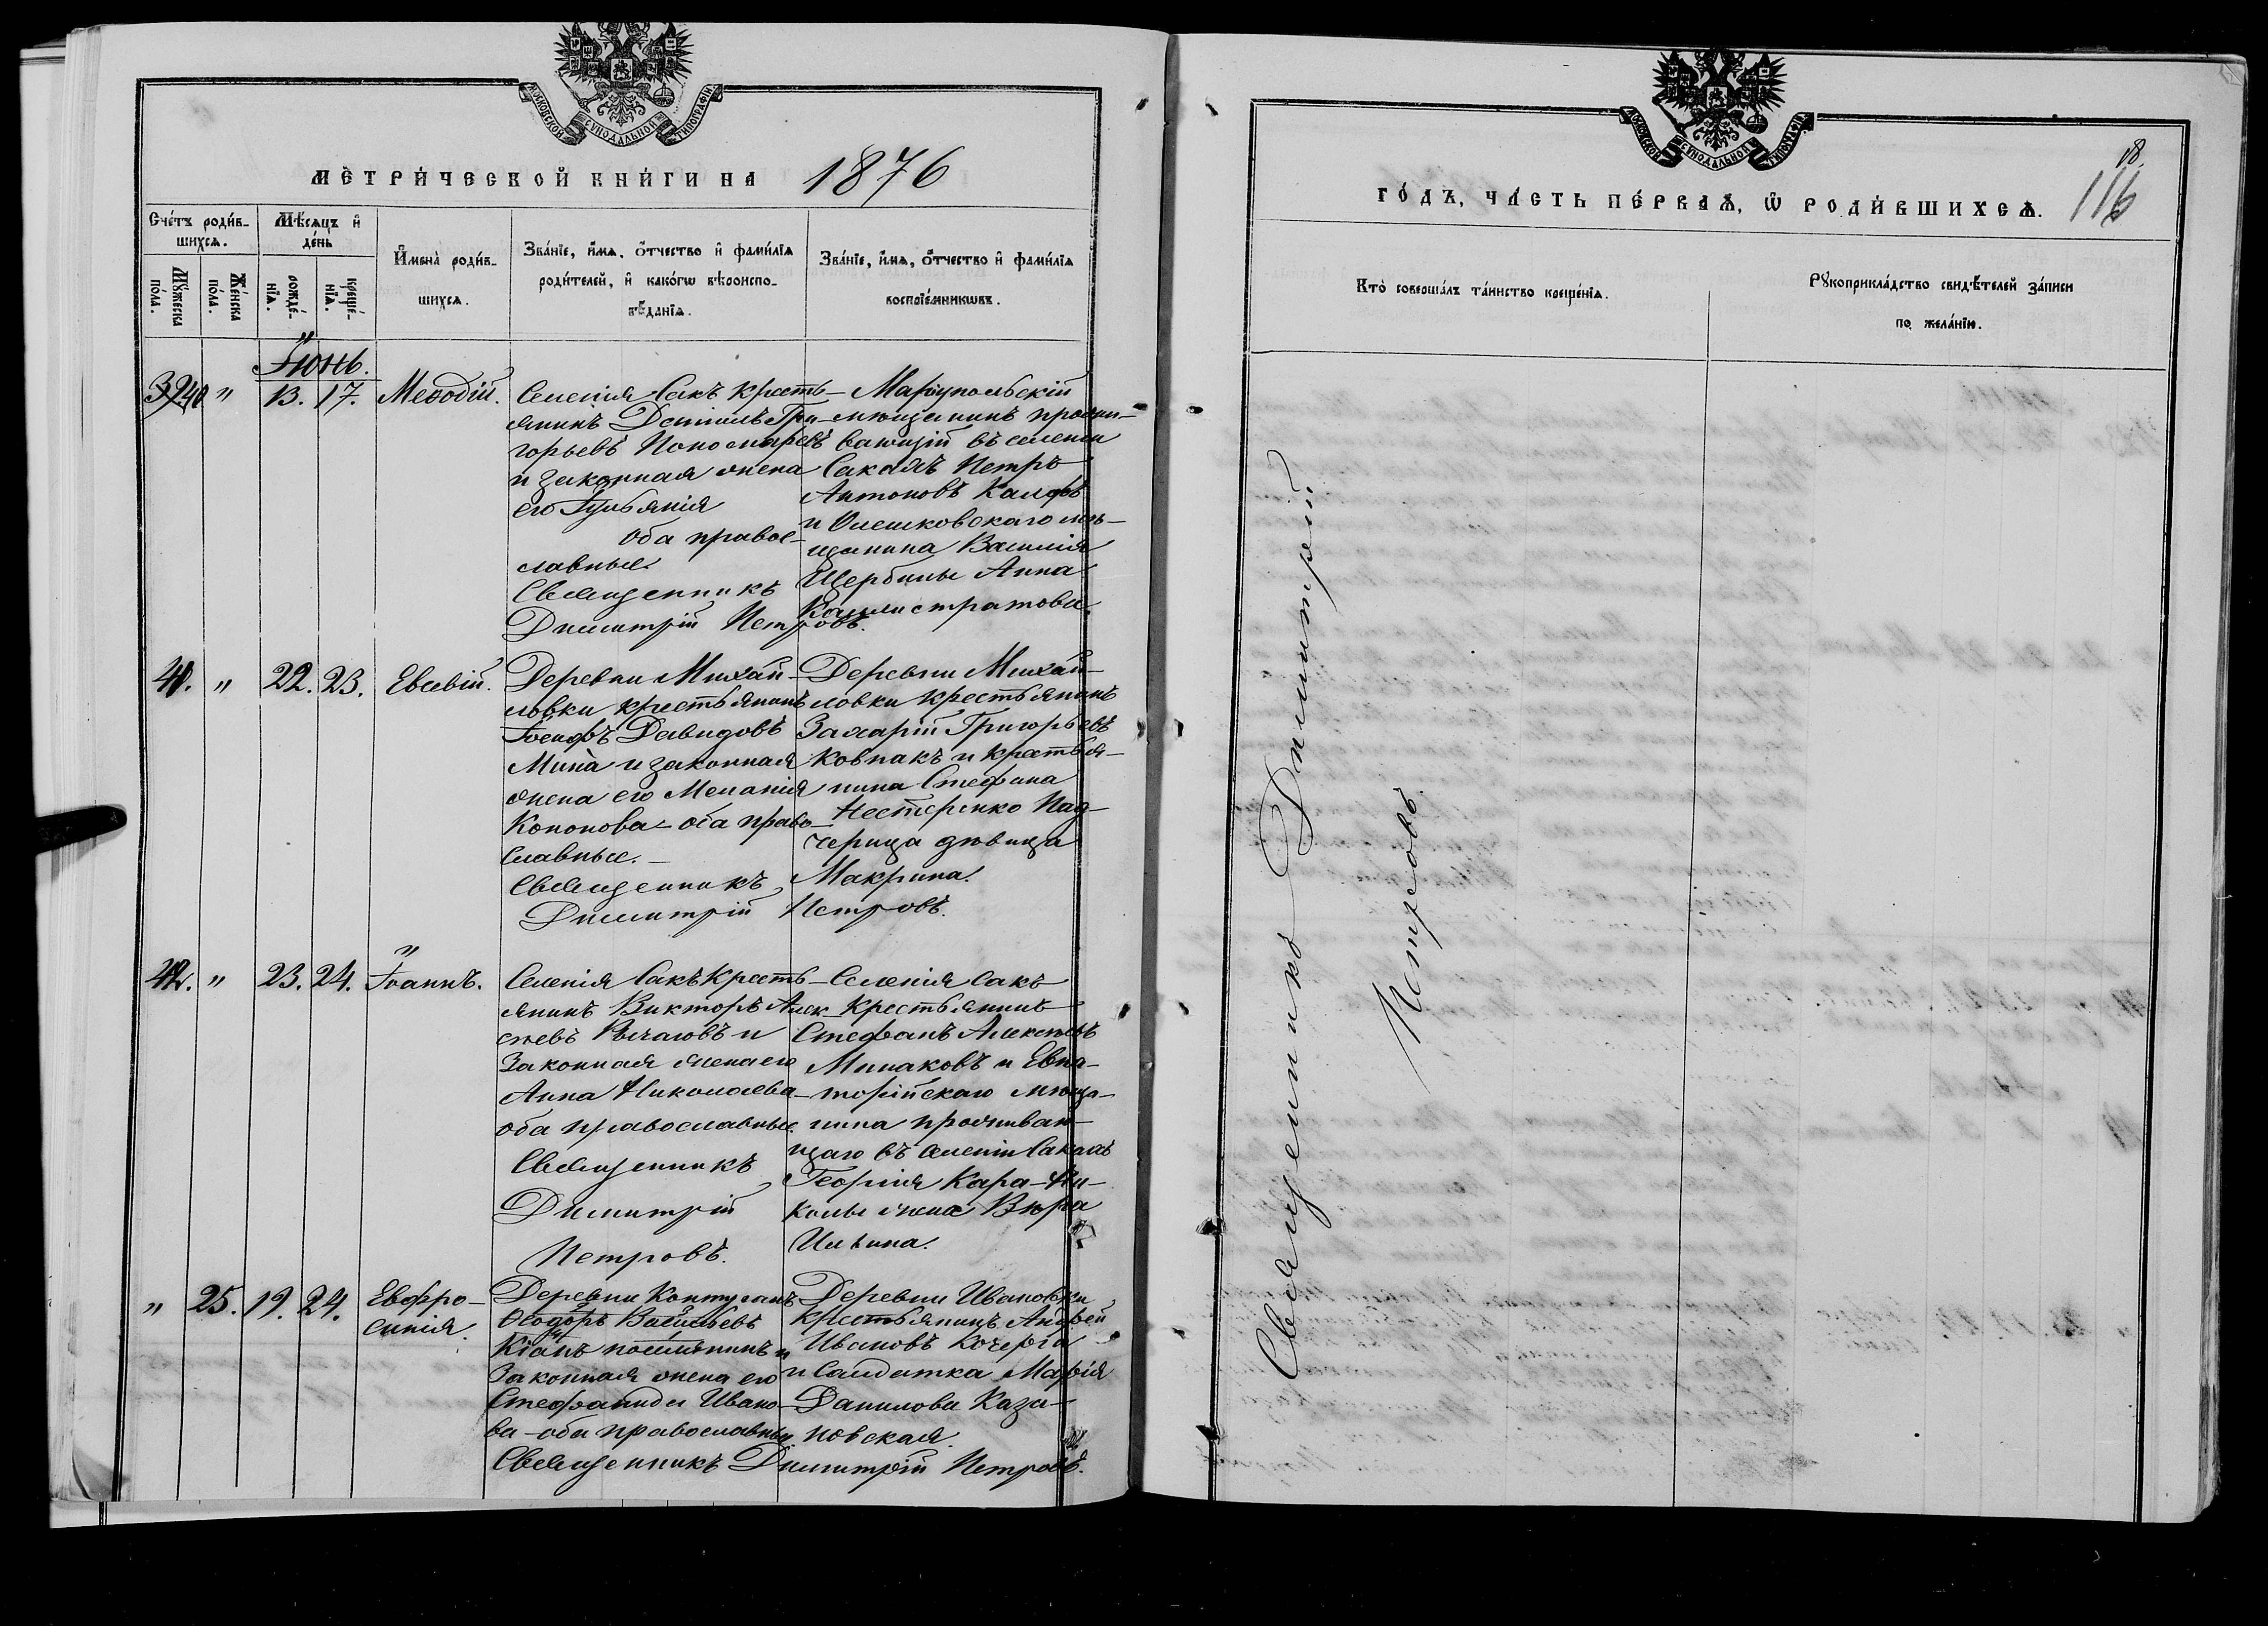 МОСКОВСКОЙ СУНОДАЛЬНОЙ ТИПОГРАФІИ
МЕТРИ́ЧЕСКОЙ КНИ́ГИ НА 1876
Сче́тъ роди́в-
шихся.
Мѣ́сяцъ и҆
де́нь
Мꙋ́жеска
по́ла.
Же́нска
по́ла.
рожде́-
нїѧ.
креще́-
нїѧ.
И҆мена̀ роди́в-
шихсѧ.
Зва́нїе, и҆́мѧ, ѻ҆́тчество и҆ фами́лїѧ
роди́телей, и҆ како́гѡ вѣроиспо-
вѣ́данїѧ.
Зва́нїе, и҆́мѧ, ѻ҆́тчество и҆ фами́лїѧ
воспрїе́мникѡвъ.
Іюнь.
39 40 " 13. 17. Меѳодій.
Селенія Сакъ кресть-
янинъ Гри-
горьевъ Пономаревъ
и законная жена
его
оба право-
славные
Священникъ
Димитрій Петровъ.
Маріупольскій
мѣщанинъ прожи-
вающій въ селеніи
Сакахъ Петръ
Антоновъ
и Олешковскаго мѣ-
щанина Василія
Щербины Анна
Каллистратова.
41. " 22. 23. Евсевій.
Деревни Михай-
ловки крестьянинъ
Іосифъ Давидовъ
Мина и законная
жена его Меланія
Кононова - оба право-
славные. -
Священникъ
Димитрій Петровъ.
Деревни Михай-
ловки крестьянинъ
Захарій Григорьевъ
Ковпакъ и крестья-
нина Стефана
Нестеренко Пад-
черица дѣвица
Макрина.
42. " 23. 24. Іоаннъ.
Селенія Сакъ Кресть-
янинъ Викторъ Алек-
сѣевъ Рычаговъ и
Законная жена его
Анна Николаева
оба православные.
Священникъ
Димитрій
Петровъ.
Селенія Сакъ
Крестьянинъ
Стефанъ Алексѣевъ
Минаковъ и Евпа-
торійскаго мѣща-
нина проживаю-
щаго въ селеніи Сакахъ
Георгія Кара-Ни-
колы жена Вѣра
Ильина.
" 25. 19. 24. Евфро-
синія.
Деревни Контуганъ
Ѳеодоръ Васильевъ
Кіянъ поселянинъ и
Законная жена его
Стефанида Ивано-
ва - оба православны
Священникъ Димитрій Петровъ.
Деревни Ивановки
Крестьянинъ Андрей
Ивановъ Кочерга
и Солдатка Марія
Данилова Каза-
новская.
МОСКОВСКОЙ СУНОДАЛЬНОЙ ТИПОГРАФІИ
18.
116
ГО́ДЪ, ЧА́СТЬ ПЕ́РВАѦ, Ѡ҆ РОДИ́ВШИХСѦ.
Кто̀ соверша́лъ та́инство креще́нїѧ.
Рꙋкоприкла́дство свидѣ́телей за́писи
по жела́нїю.
Священникъ Димитрій
Петровъ.